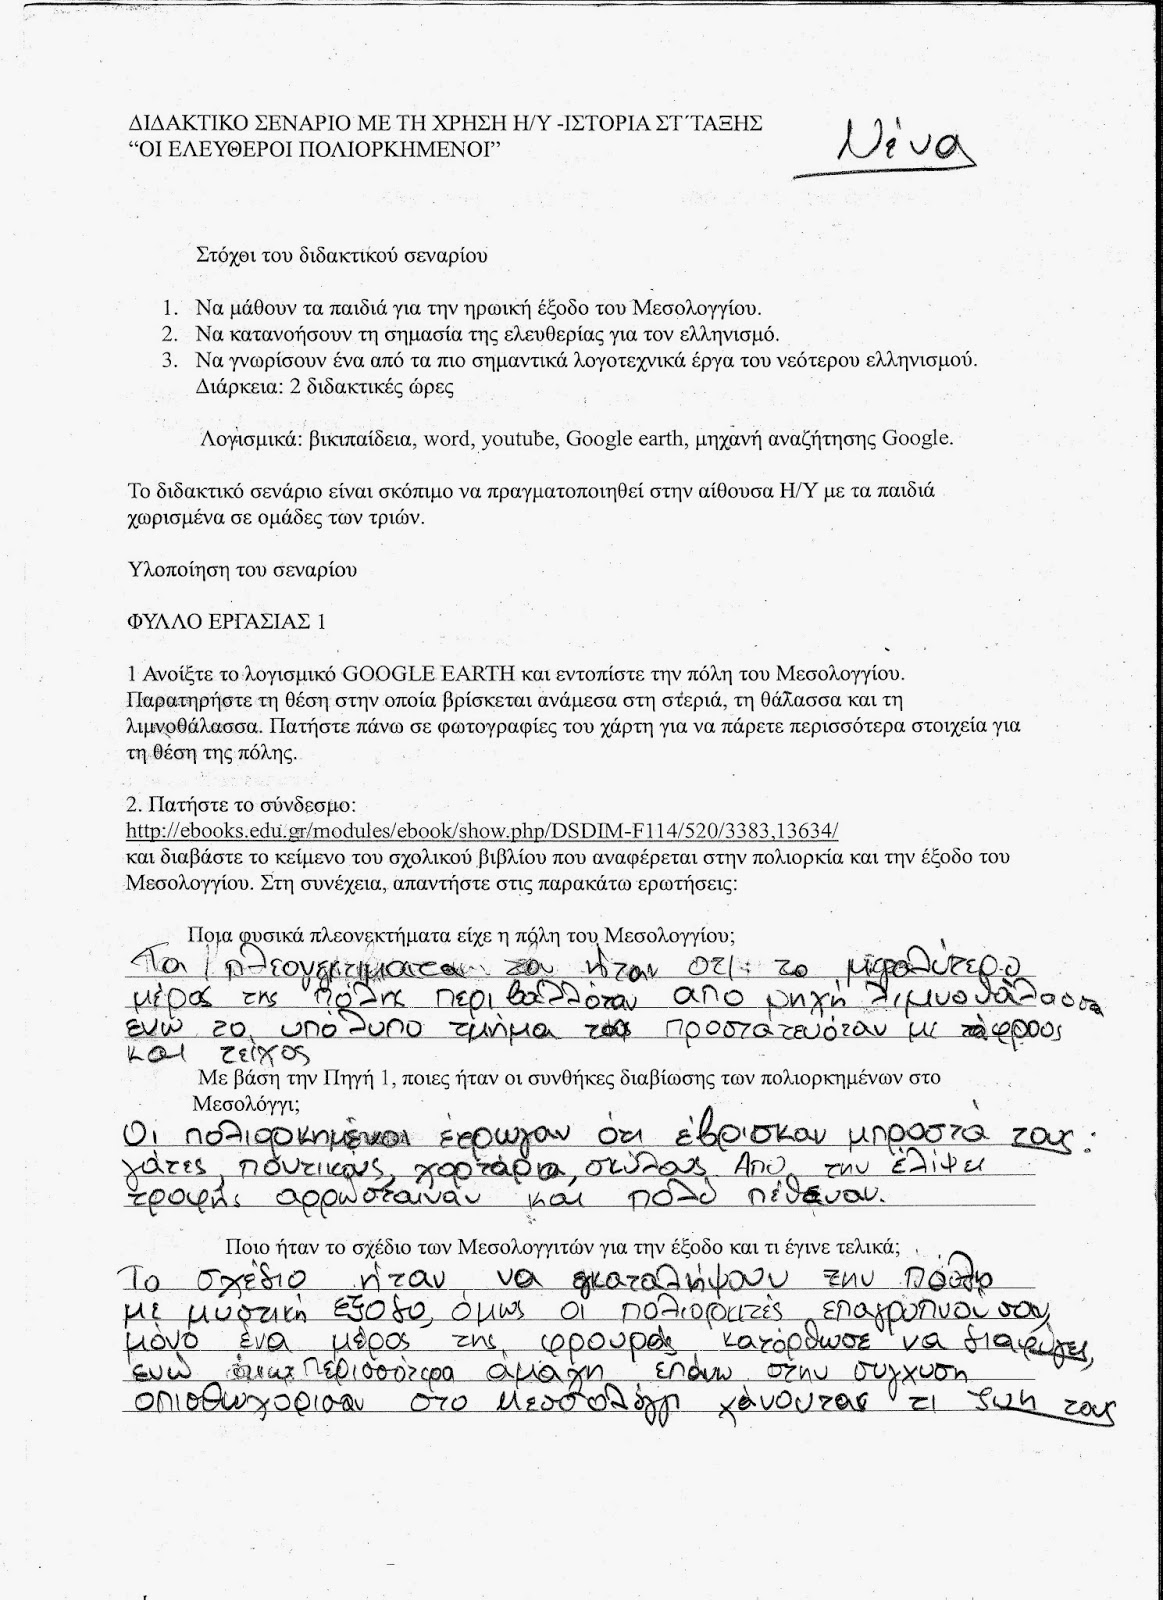 ΔΙΔΑΚΤΙΚΟ ΣΕΝΑΡΙΟ ΜΕ ΤΗ ΧΡΗΣΗ Η/Υ -ΙΣΤΟΡΙΑ ΣΤ΄ΤΑΞΗΣ
“ΟΙ ΕΛΕΥΘΕΡΟΙ ΠΟΛΙΟΡΚΗΜΕΝΟΙ”
Νένα
Στόχοι του διδακτικού σεναρίου
1. Να μάθουν τα παιδιά για την ηρωική έξοδο του Μεσολογγίου.
2. Να κατανοήσουν τη σημασία της ελευθερίας για τον ελληνισμό.
3. Να γνωρίσουν ένα από τα πιο σημαντικά λογοτεχνικά έργα του νεότερου ελληνισμού.
Διάρκεια: 2 διδακτικές ώρες
Λογισμικά: βικιπαίδεια, word, youtube, Google earth, μηχανή αναζήτησης Google.
Το διδακτικό σενάριο είναι σκόπιμο να πραγματοποιηθεί στην αίθουσα Η/Υ με τα παιδιά
χωρισμένα σε ομάδες των τριών.
Υλοποίηση του σεναρίου
ΦΥΛΛΟ ΕΡΓΑΣΙΑΣ 1
1 Ανοίξτε το λογισμικό GOOGLE EARTH και εντοπίστε την πόλη του Μεσολογγίου.
Παρατηρήστε τη θέση στην οποία βρίσκεται ανάμεσα στη στεριά, τη θάλασσα και τη
λιμνοθάλασσα. Πατήστε πάνω σε φωτογραφίες του χάρτη για να πάρετε περισσότερα στοιχεία για
τη θέση της πόλης.
2. Πατήστε το σύνδεσμο:
http://ebooks.edu.gr/modules/ebook/show.php/DSDIM-F114/520/3383,13634/
και διαβάστε το κείμενο του σχολικού βιβλίου που αναφέρεται στην πολιορκία και την έξοδο του
Μεσολογγίου. Στη συνέχεια, απαντήστε στις παρακάτω ερωτήσεις:
Ποια φυσικά πλεονεκτήματα είχε η πόλη του Μεσολογγίου;
Τα πλεονεκτιματα του ήταν οτι το μεγαλύτερο
μέρος της πόλης περιβαλλόταν απο ρηχή λιμνοθάλασσα
ενώ το υπόλυπο τμήμα της προστατευόταν με τάφρους
και τείχος
Με βάση την Πηγή 1, ποιες ήταν οι συνθήκες διαβίωσης των πολιορκημένων στο
Μεσολόγγι;
Οι πολιορκημένοι έτρωγαν ότι έβρισκαν μπροστά τους:
γάτες, ποντικους, χορτάρια, σκύλους. Από την έλιψει
τροφής αρρώσταιναν και πολύ πέθεναν.
Ποιο ήταν το σχέδιο των Μεσολογγιτών για την έξοδο και τι έγινε τελικά;
Το σχέδιο ήταν να εγκαταλήψουν την πόλη
με μυστική έξοδο, όμως οι πολιορκιτές επαγρυπνούσαν,
μόνο ένα μέρος της φρουράς κατόρθωσε να διαφύγει,
ενώ περισσότερα άμαχη επάνω στην σύγχυση
οπισθωχόρισαν στο Μεσσολόγγι χάνουτας τι ζωή τους